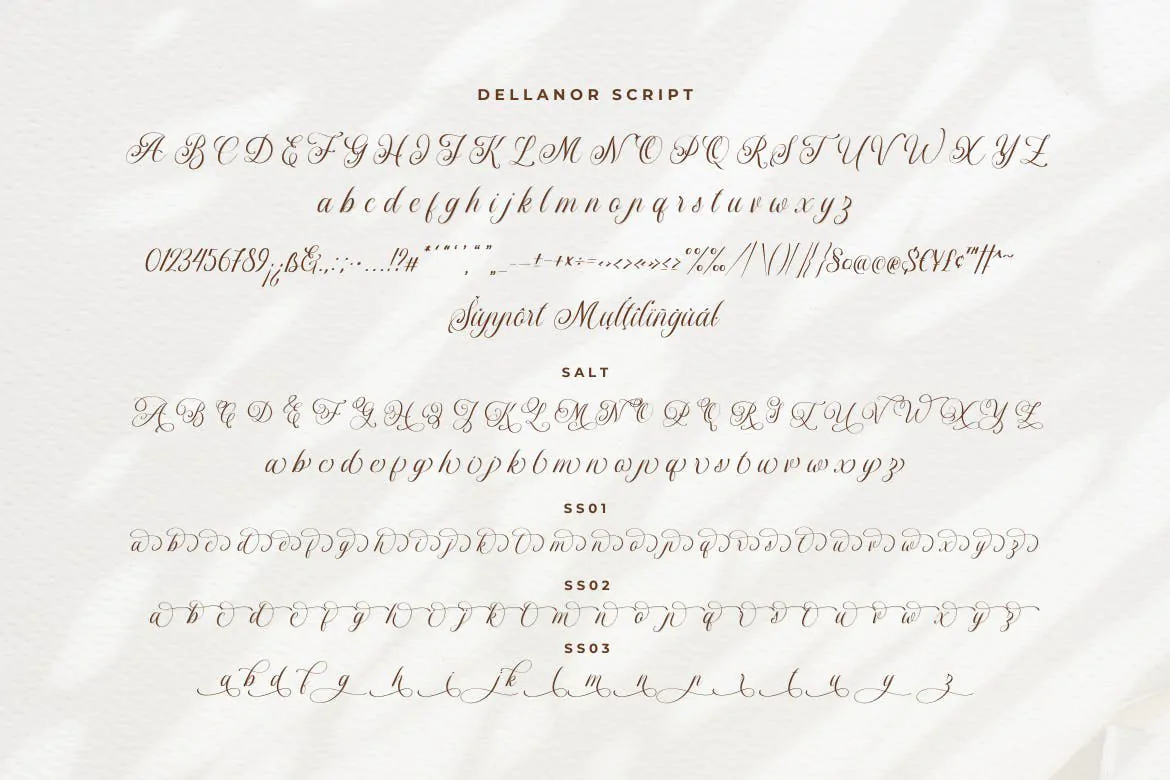 DELLANOR SCRIPT
A B C D E F G H I J K L M N O P Q R S T U V W X Y Z
a b c d e f g h i j k l m n o p q r s t u v w x y z
0123456789
Ṡüppôrt Mụļţilïñġùáł
SALT
A B C D E F G H I J K L M N O P Q R S T U V W X Y Z
a b c d e f g h i j k l m n o p q r s t u v w x y z
SS01
a b c d e f g h i j k l m n o p q r s t u v w x y z
SS02
a b c d e f g h i j k l m n o p q r s t u v w x y z
SS03
a b d f g h i j k l m n p r t u y z